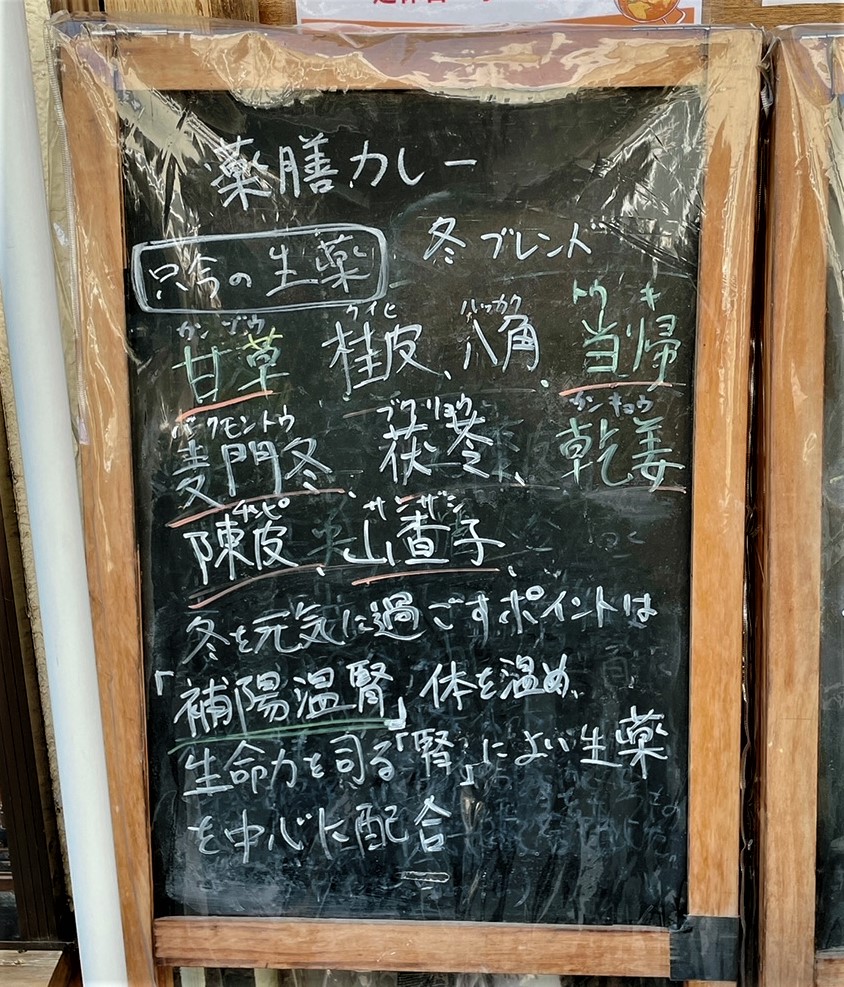 薬膳カレー
只今の生薬 冬ブレンド
カンゾウ ケイヒ ハッカク トウキ
甘草 桂皮、八角、当帰
バクモントウ ブクリョウ カンキョウ
麦門冬、茯苓、乾姜
チンピ サンザシ
陳皮、山査子、
冬を元気に過ごすポイントは
「補陽温腎」体を温め、
生命力を司る「腎」によい生薬
を中心に配合